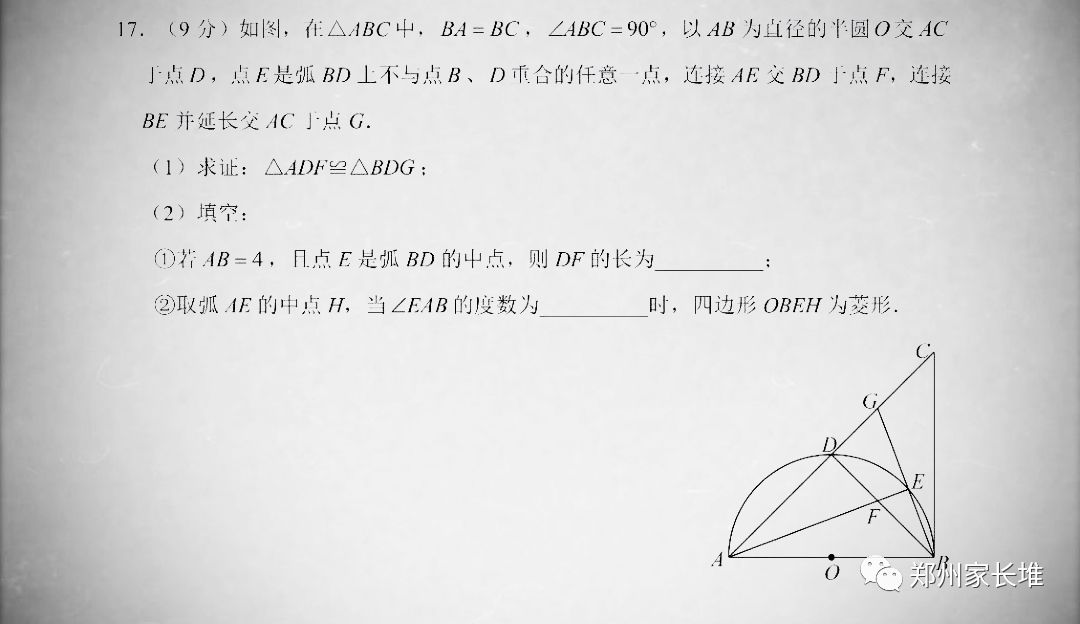 17. （9 分）如图，在△ABC 中，BA = BC，∠ABC = 90°，以 AB 为直径的半圆 O 交 AC
于点 D，点 E 是弧 BD 上不与点 B、D 重合的任意一点，连接 AE 交 BD 于点 F，连接
BE 并延长交 AC 于点 G．
（1）求证：△ADF≌△BDG；
（2）填空：
①若 AB = 4，且点 E 是弧 BD 的中点，则 DF 的长为__________；
②取弧 AE 的中点 H，当∠EAB 的度数为__________时，四边形 OBEH 为菱形．
C
G
D
E
F
A
O
B
郑州家长堆